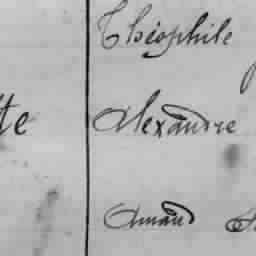 Théophile
te Alexandre
Amand